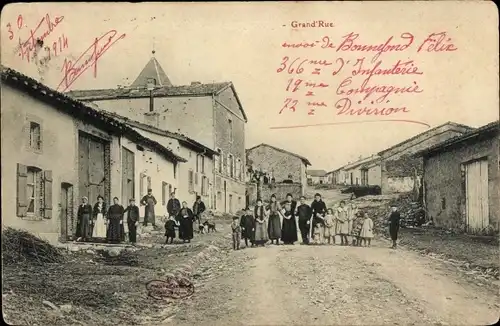 - Grand'Rue
30
Septembre
1914
envoi de Bonnefond Félix
366me d'Infanterie
19me Compagnie
72me Division